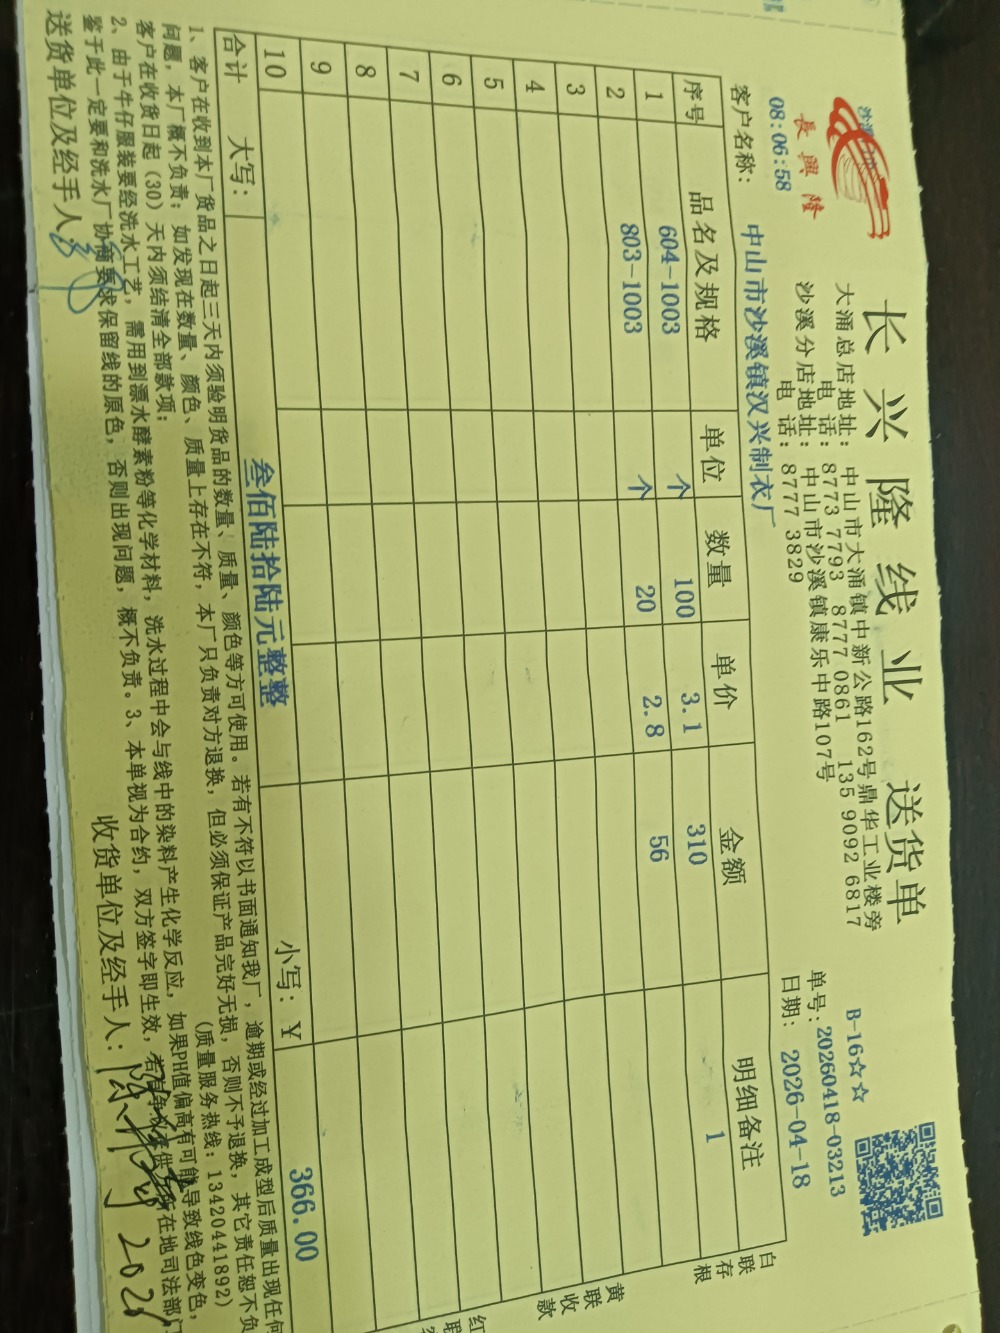 長興隆
08:06:58
长兴隆线业 送货单
大涌总店地址：中山市大涌镇中新公路162号鼎华工业楼旁
电 话：8773 7793 8777 0861 135 9092 6817
沙溪分店地址：中山市沙溪镇康乐中路107号
电 话：8777 3829
B-16☆☆
单号：20260418-03213
日期：2026-04-18
客户名称：中山市沙溪镇汉兴制衣厂
序号 品名及规格 单位 数量 单价 金额 明细备注
1 604-1003 个 100 3.1 310 1
2 803-1003 个 20 2.8 56
3
4
5
6
7
8
9
10
合计 大写：叁佰陆拾陆元整整 小写：￥ 366.00
白联存根
黄联收款
红联
1、客户在收到本厂货品之日起三天内须验明货品的数量、质量、颜色等方可使用。若有不符以书面通知我厂，逾期或经过加工成型后质量出现任何
问题，本厂概不负责；如发现在数量、颜色、质量上存在不符，本厂只负责对方退换，但必须保证产品完好无损，否则不予退换，其它责任恕不负
客户在收货日起（30）天内须结清全部款项； （质量服务热线：13420441892）
2、由于牛仔服装要经洗水工艺，需用到漂水酵素粉等化学材料，洗水过程中会与线中的染料产生化学反应，如果PH值偏高有可能导致线色变色，
鉴于此一定要和洗水厂协商要求保留线的原色，否则出现问题，概不负责。3、本单视为合约，双方签字即生效，若有 所在地司法部门
送货单位及经手人： 收货单位及经手人：